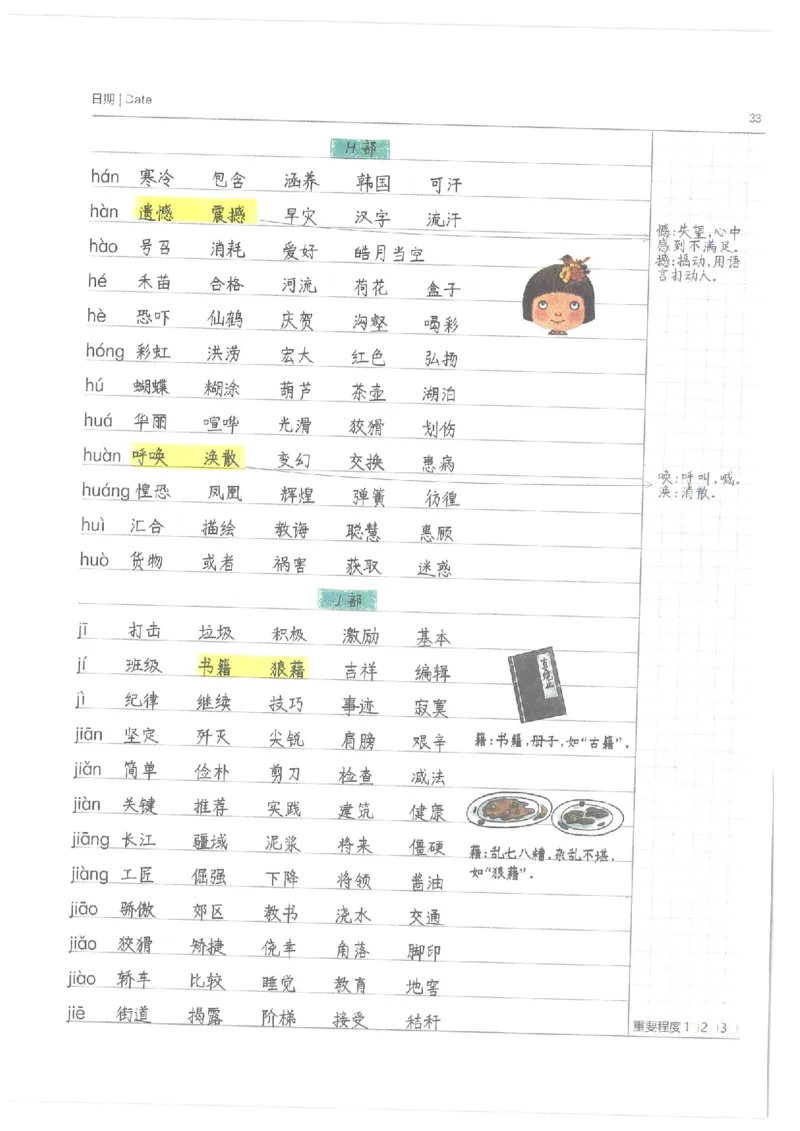 日期 | Date
33
H部
hán 寒冷 包含 涵养 韩国 可汗
hàn 遗憾 震撼 旱灾 汉字 流汗
憾:失望,心中
感到不满足。
撼:摇动,用语
言打动人。
hào 号召 消耗 爱好 皓月当空
hé 禾苗 合格 河流 荷花 盒子
hè 恐吓 仙鹤 庆贺 沟壑 喝彩
hóng 彩虹 洪涝 宏大 红色 弘扬
hú 蝴蝶 糊涂 葫芦 茶壶 湖泊
huá 华丽 喧哗 光滑 狡猾 划伤
huàn 呼唤 涣散 变幻 交换 患病
唤:呼叫,喊。
涣:消散。
huáng 惶恐 凤凰 辉煌 弹簧 彷徨
huì 汇合 描绘 教诲 聪慧 惠顾
huò 货物 或者 祸害 获取 迷惑
J部
jī 打击 垃圾 积极 激励 基本
jí 班级 书籍 狼藉 吉祥 编辑
jì 纪律 继续 技巧 事迹 寂寞
jiān 坚定 歼灭 尖锐 肩膀 艰辛
籍:书籍,册子,如“古籍”。
jiǎn 简单 俭朴 剪刀 检查 减法
jiàn 关键 推荐 实践 建筑 健康
jiāng 长江 疆域 泥浆 将来 僵硬
藉:乱七八糟,杂乱不堪,
如“狼藉”。
jiàng 工匠 倔强 下降 将领 酱油
jiāo 骄傲 郊区 教书 浇水 交通
jiǎo 狡猾 矫捷 侥幸 角落 脚印
jiào 轿车 比较 睡觉 教育 地窖
jiē 街道 揭露 阶梯 接受 秸秆
重要程度 1 2 3